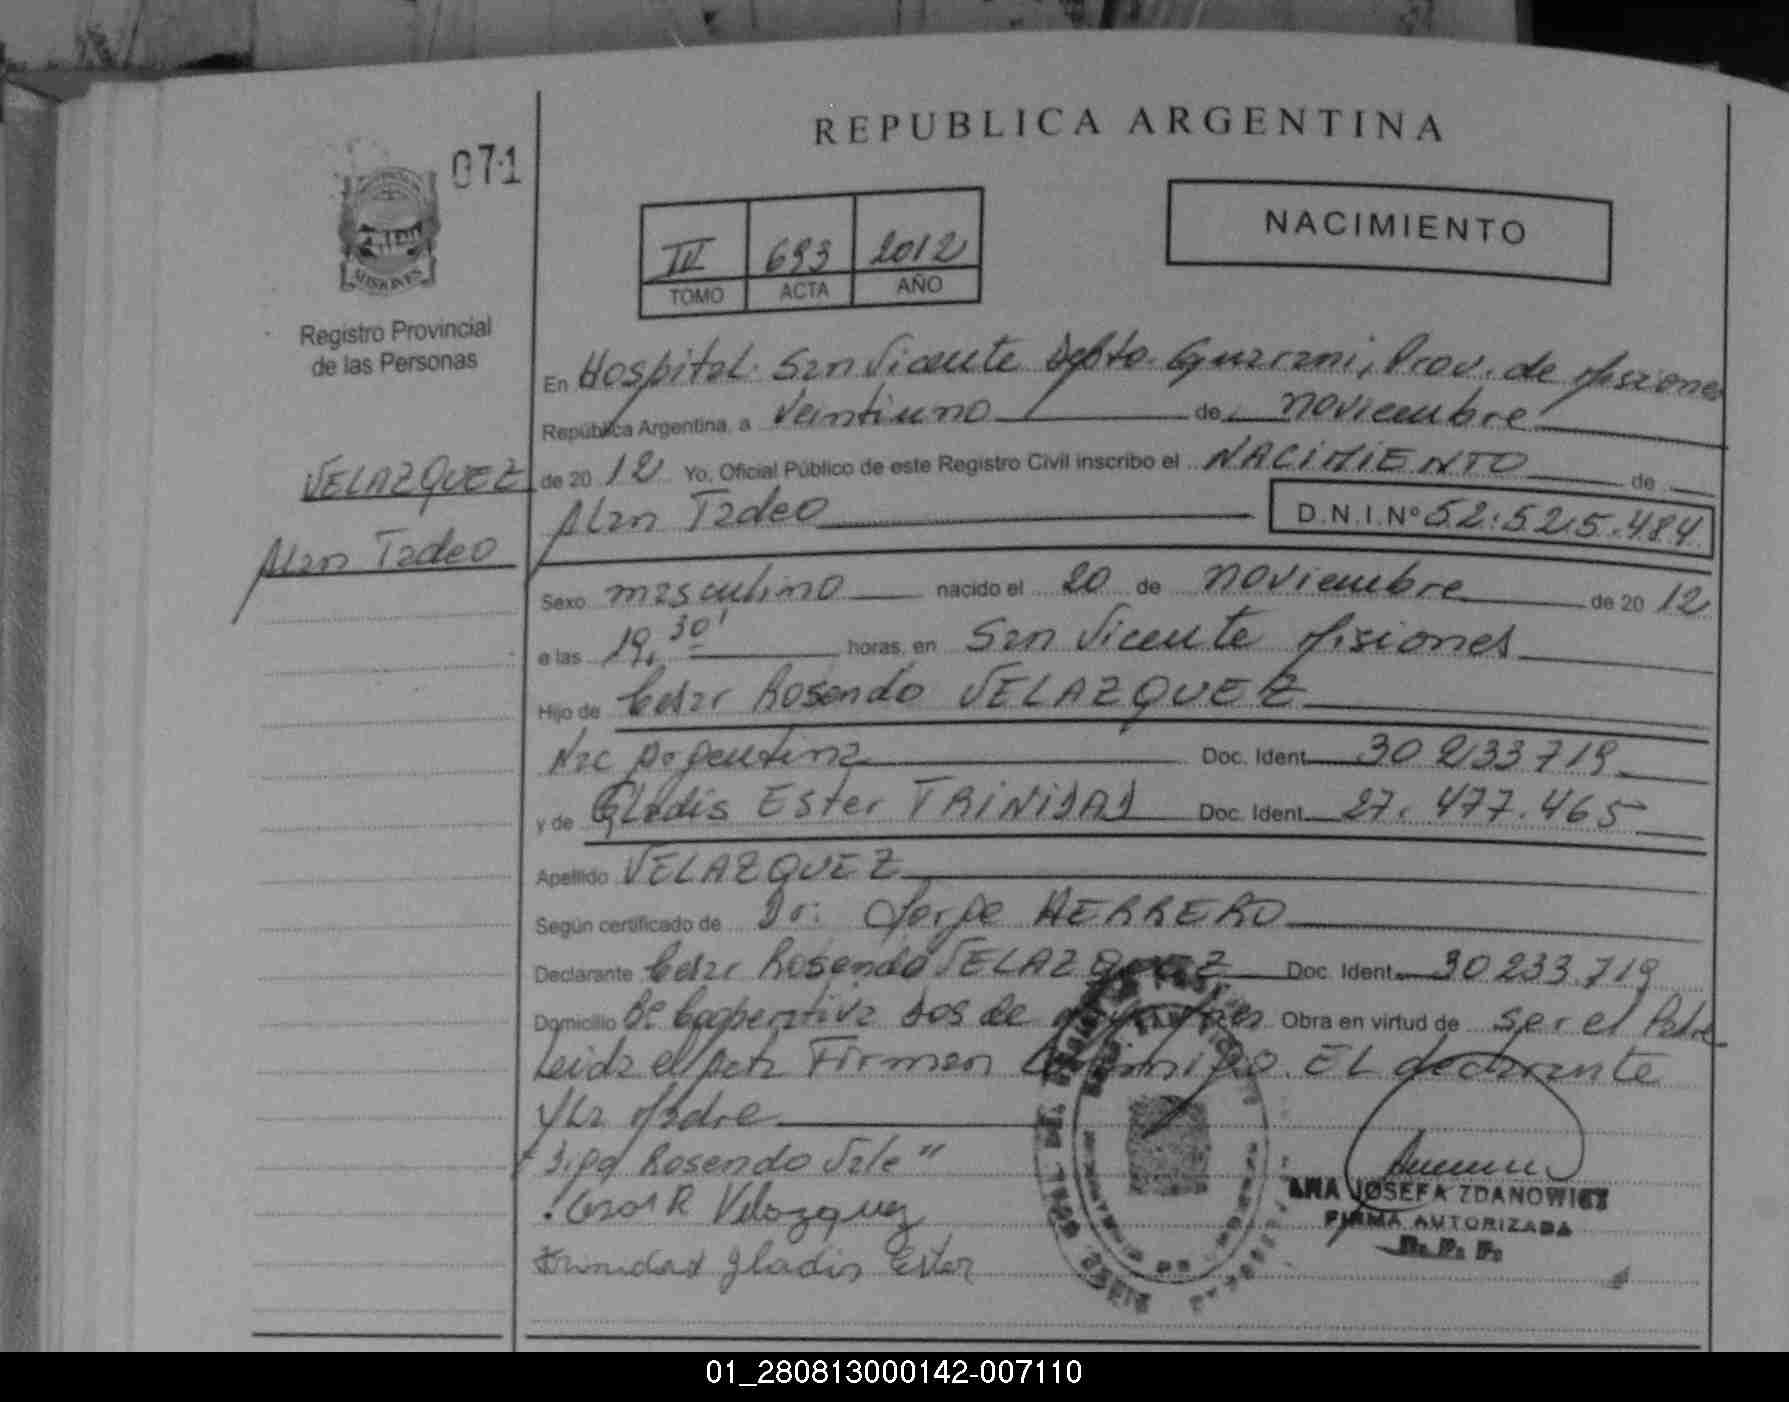 REPUBLICA ARGENTINA
071
NACIMIENTO
III 693 2012
TOMO ACTA AÑO
MISIONES
Registro Provincial
de las Personas
En Hospital San Vicente Dpto. Guarani, Prov. de Misiones
República Argentina, a veintiuno de noviembre
de 2012 Yo, Oficial Público de este Registro Civil inscribo el NACIMIENTO de
VELAZQUEZ
Alan Tadeo
Alan Tadeo D.N.I.Nº 52.525.484
Sexo masculino nacido el 20 de noviembre de 2012
a las 19,30' horas, en San Vicente Misiones
Hijo de Cesar Rosendo VELAZQUEZ
Nac Argentina Doc. Ident. 30233719
y de Gladis Ester TRINIDAD Doc. Ident. 27.477.465
Apellido VELAZQUEZ
Según certificado de Dr: Jorge HERRERO
Declarante Cesar Rosendo VELAZQUEZ Doc. Ident. 30233.719
Domicilio Bº Cooperativa Dos de Obra en virtud de ser el Padre
Leida el acta Firman conmigo EL declarante
y La Madre
Rosendo Vale"
Cesar R Velazquez
Trinidad Gladis Ester
ANA JOSEFA ZDANOWICZ
FIRMA AUTORIZADA
R. P. P.
01_280813000142-007110